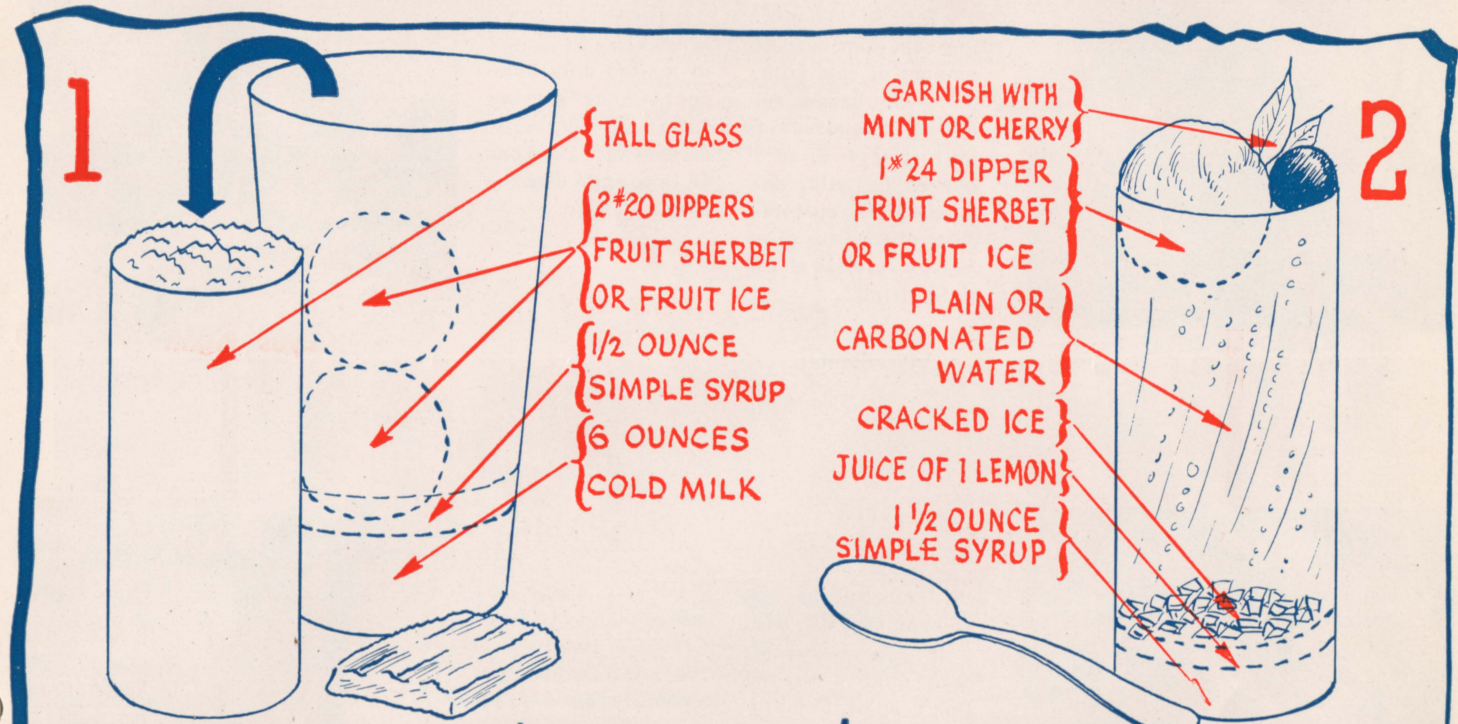 1
TALL GLASS
2 #20 DIPPERS
FRUIT SHERBET
OR FRUIT ICE
1/2 OUNCE
SIMPLE SYRUP
6 OUNCES
COLD MILK
2
GARNISH WITH
MINT OR CHERRY
1 #24 DIPPER
FRUIT SHERBET
OR FRUIT ICE
PLAIN OR
CARBONATED
WATER
CRACKED ICE
JUICE OF 1 LEMON
1 1/2 OUNCE
SIMPLE SYRUP